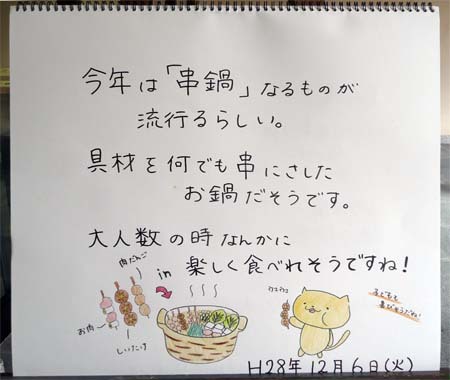 今年は「串鍋」なるものが
流行るらしい。
具材を何でも串にさした
お鍋だそうです。
大人数の時なんかに
楽しく食べれそうですね!
肉だんご
in
お肉
しいたけ
子どもも
喜びそうだね!
H28年12月6日(火)